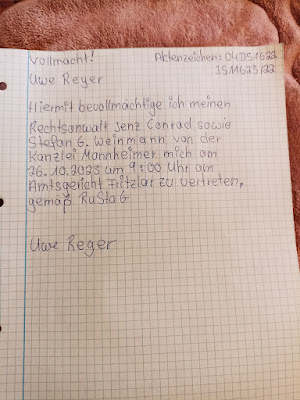 Vollmacht! Aktenzeichen: 04DS1622
JS11623/22
Uwe Reger
Hiermit bevollmächtige ich meinen
Rechtsanwalt Jenz Conrad sowie
Stefan G. Weinmann von der
Kanzlei Mannheimer mich am
26.10.2023 um 9:00 Uhr am
Amtsgericht Fritzlar zu vertreten,
gemäß RuStaG
Uwe Reger